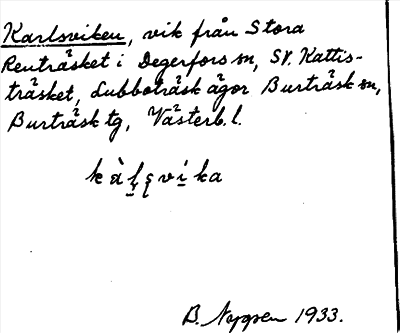 Karlsviken, vik från Stora
Renträsket i Degerfors sn, SV. Kattis-
träsket, Lubboträsk ägor Burträsk sn,
Burträsk tg, Västerb. l.
kàḷṣvi̱ka
B. Nygren 1933.